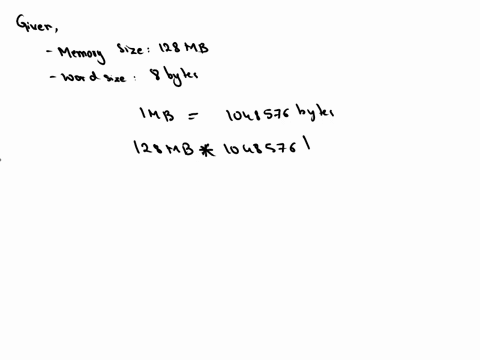 Given,
- Memory size: 128 MB
- word size: 8 bytes
1MB = 1048576 bytes
128MB * 1048576 |